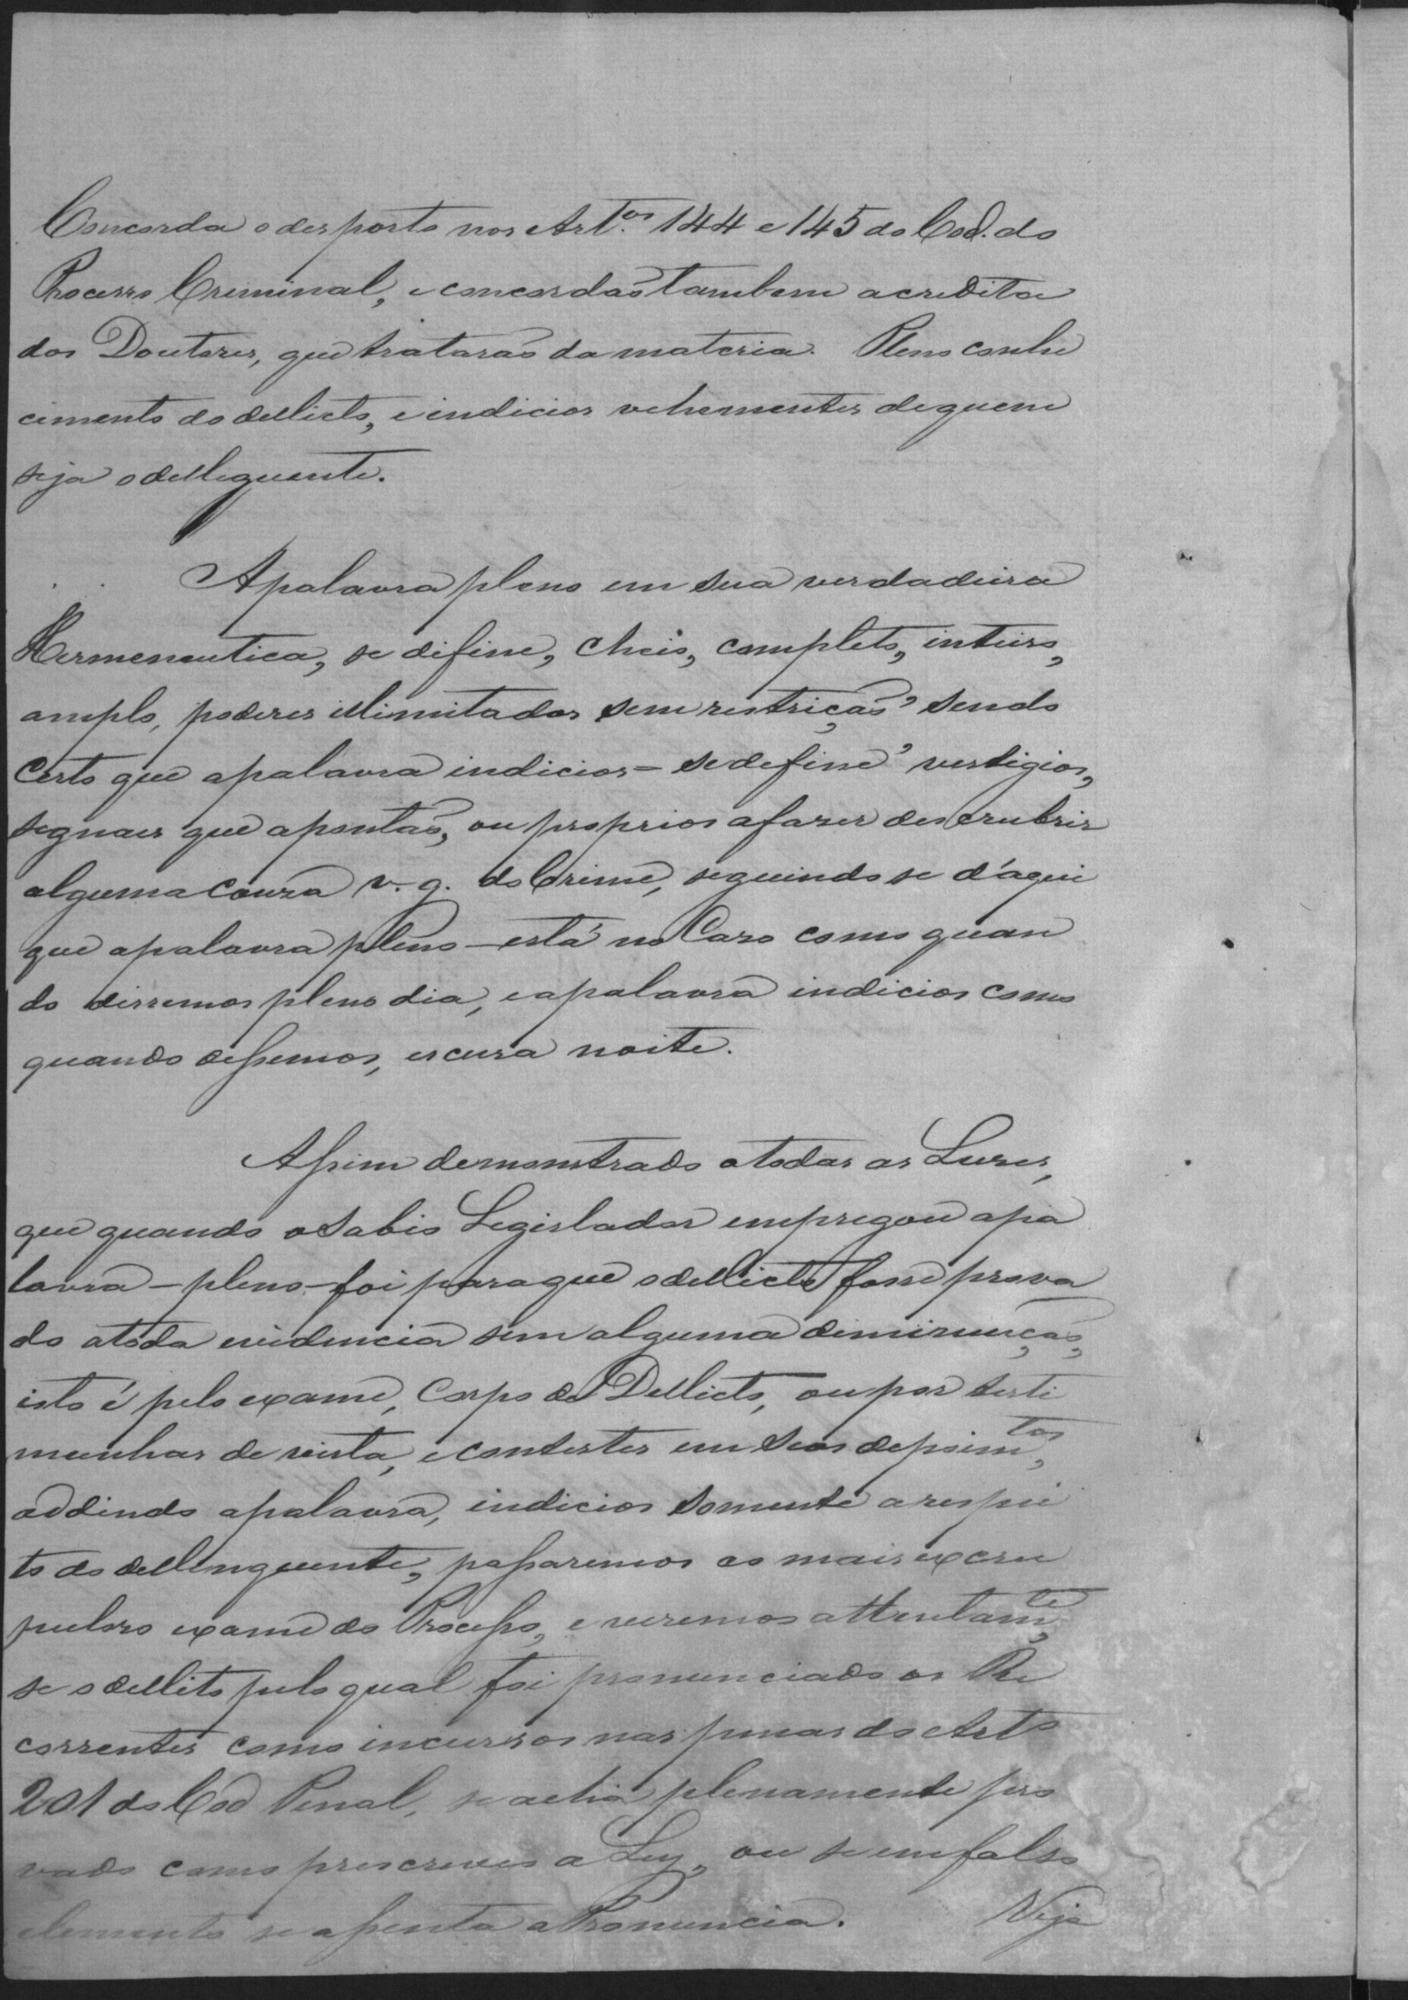 Concorda o desposto nos Art.os 144 e 145 do Cod. do
Processo Creminal, e concordaõ tambem acreditos
dos Doutores, que trataraõ da materia. Pleno conhe
cimento do dellicto, e indicios vehementes de quem
seja o delleguente.
A palavra pleno em sua verdadeira
Hermeneutica, se difine, cheio, completo, inteiro,
amplo, poderes illimitados sem restricçaõ, sendo
certo que a palavra indicios = se define, vestigios,
segnaes que apontaõ, ou proprios a fazer descrubrir
alguma couza v. g. do Crime, seguindo se d'aqui
que a palavra pleno - está no Caso como quan
do dissemos pleno dia, e a palavra indicios como
quando dessemos, escura noite.
Assim demonstrado a todas as Luzes,
que quando o Sabio Legislador empregou a pa
lavra - pleno - foi para que o dellicto fosse prova
do a toda evidencia sem alguma deminuiçaõ,
isto é pelo exame, Corpo de Dellicto, ou por testi
munhas de vista, e contestes em seos depoim.tos,
addindo a palavra, indicios somente a respei
to do dellenquente, passaremos ao mais excru
puloso exame do Processo, e veremos attentam.te,
se o dellito pelo qual foi pronunciado os Re
correntes como incursos nas penas do Arto
201 do Cod Penal, se acha plenamente pro
vado como prescreve a Ley, ou se em falso
elemento se assenta a Pronuncia. Veja